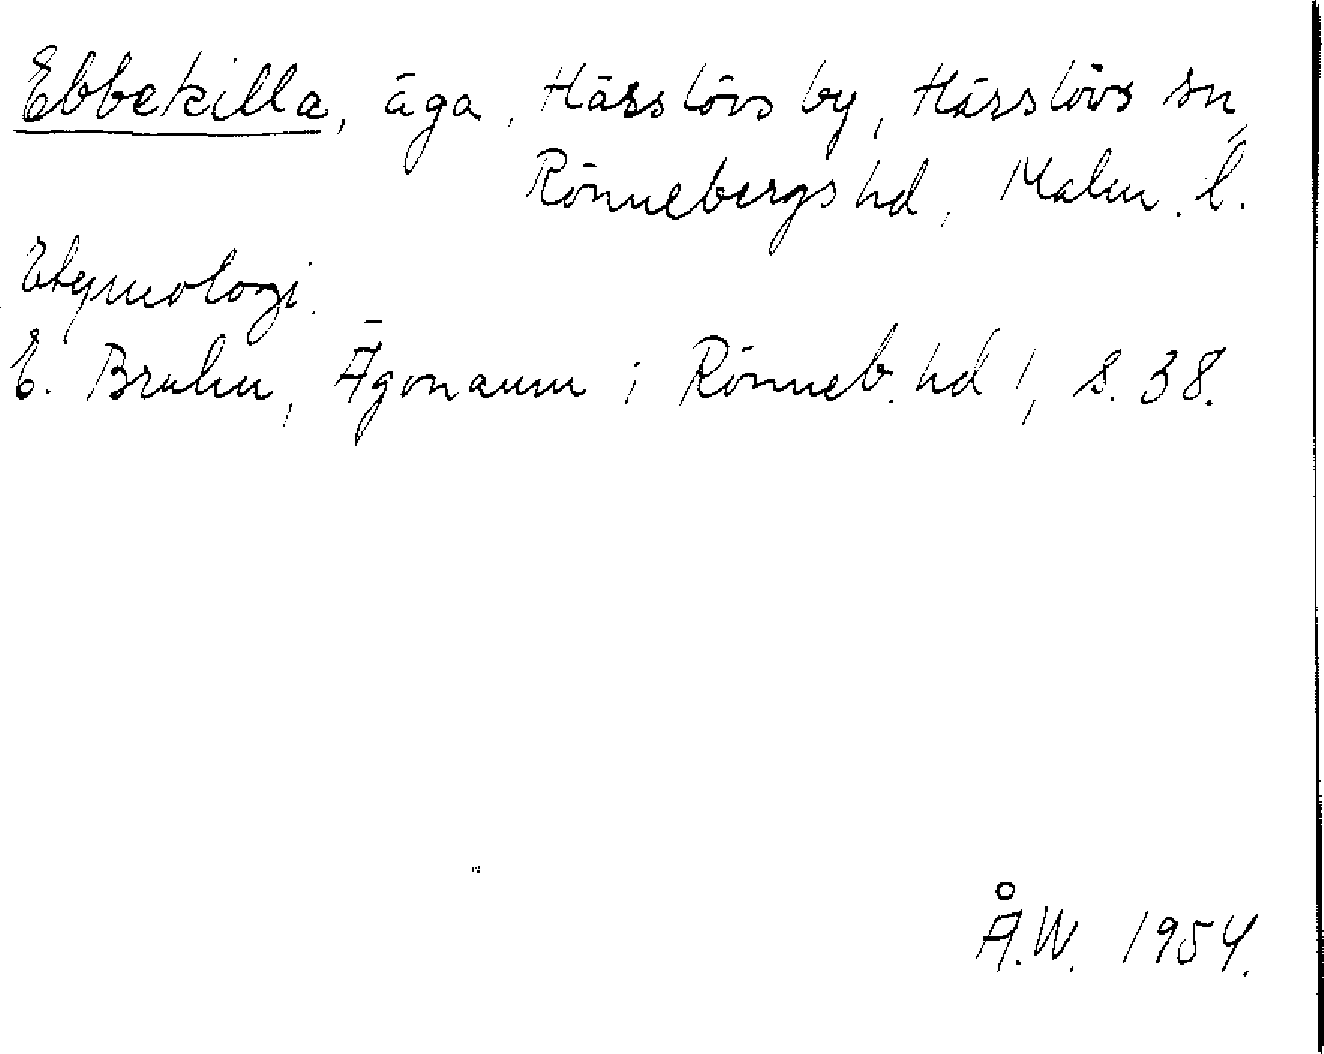 Ebbekilla, äga, Härslövs by, Härslövs sn,
Rönnebergs hd, Malm. l.
Etymologi.
E. Bruhn, Ägonamn i Rönneb. hd 1, s. 38.
Å.W. 1954.